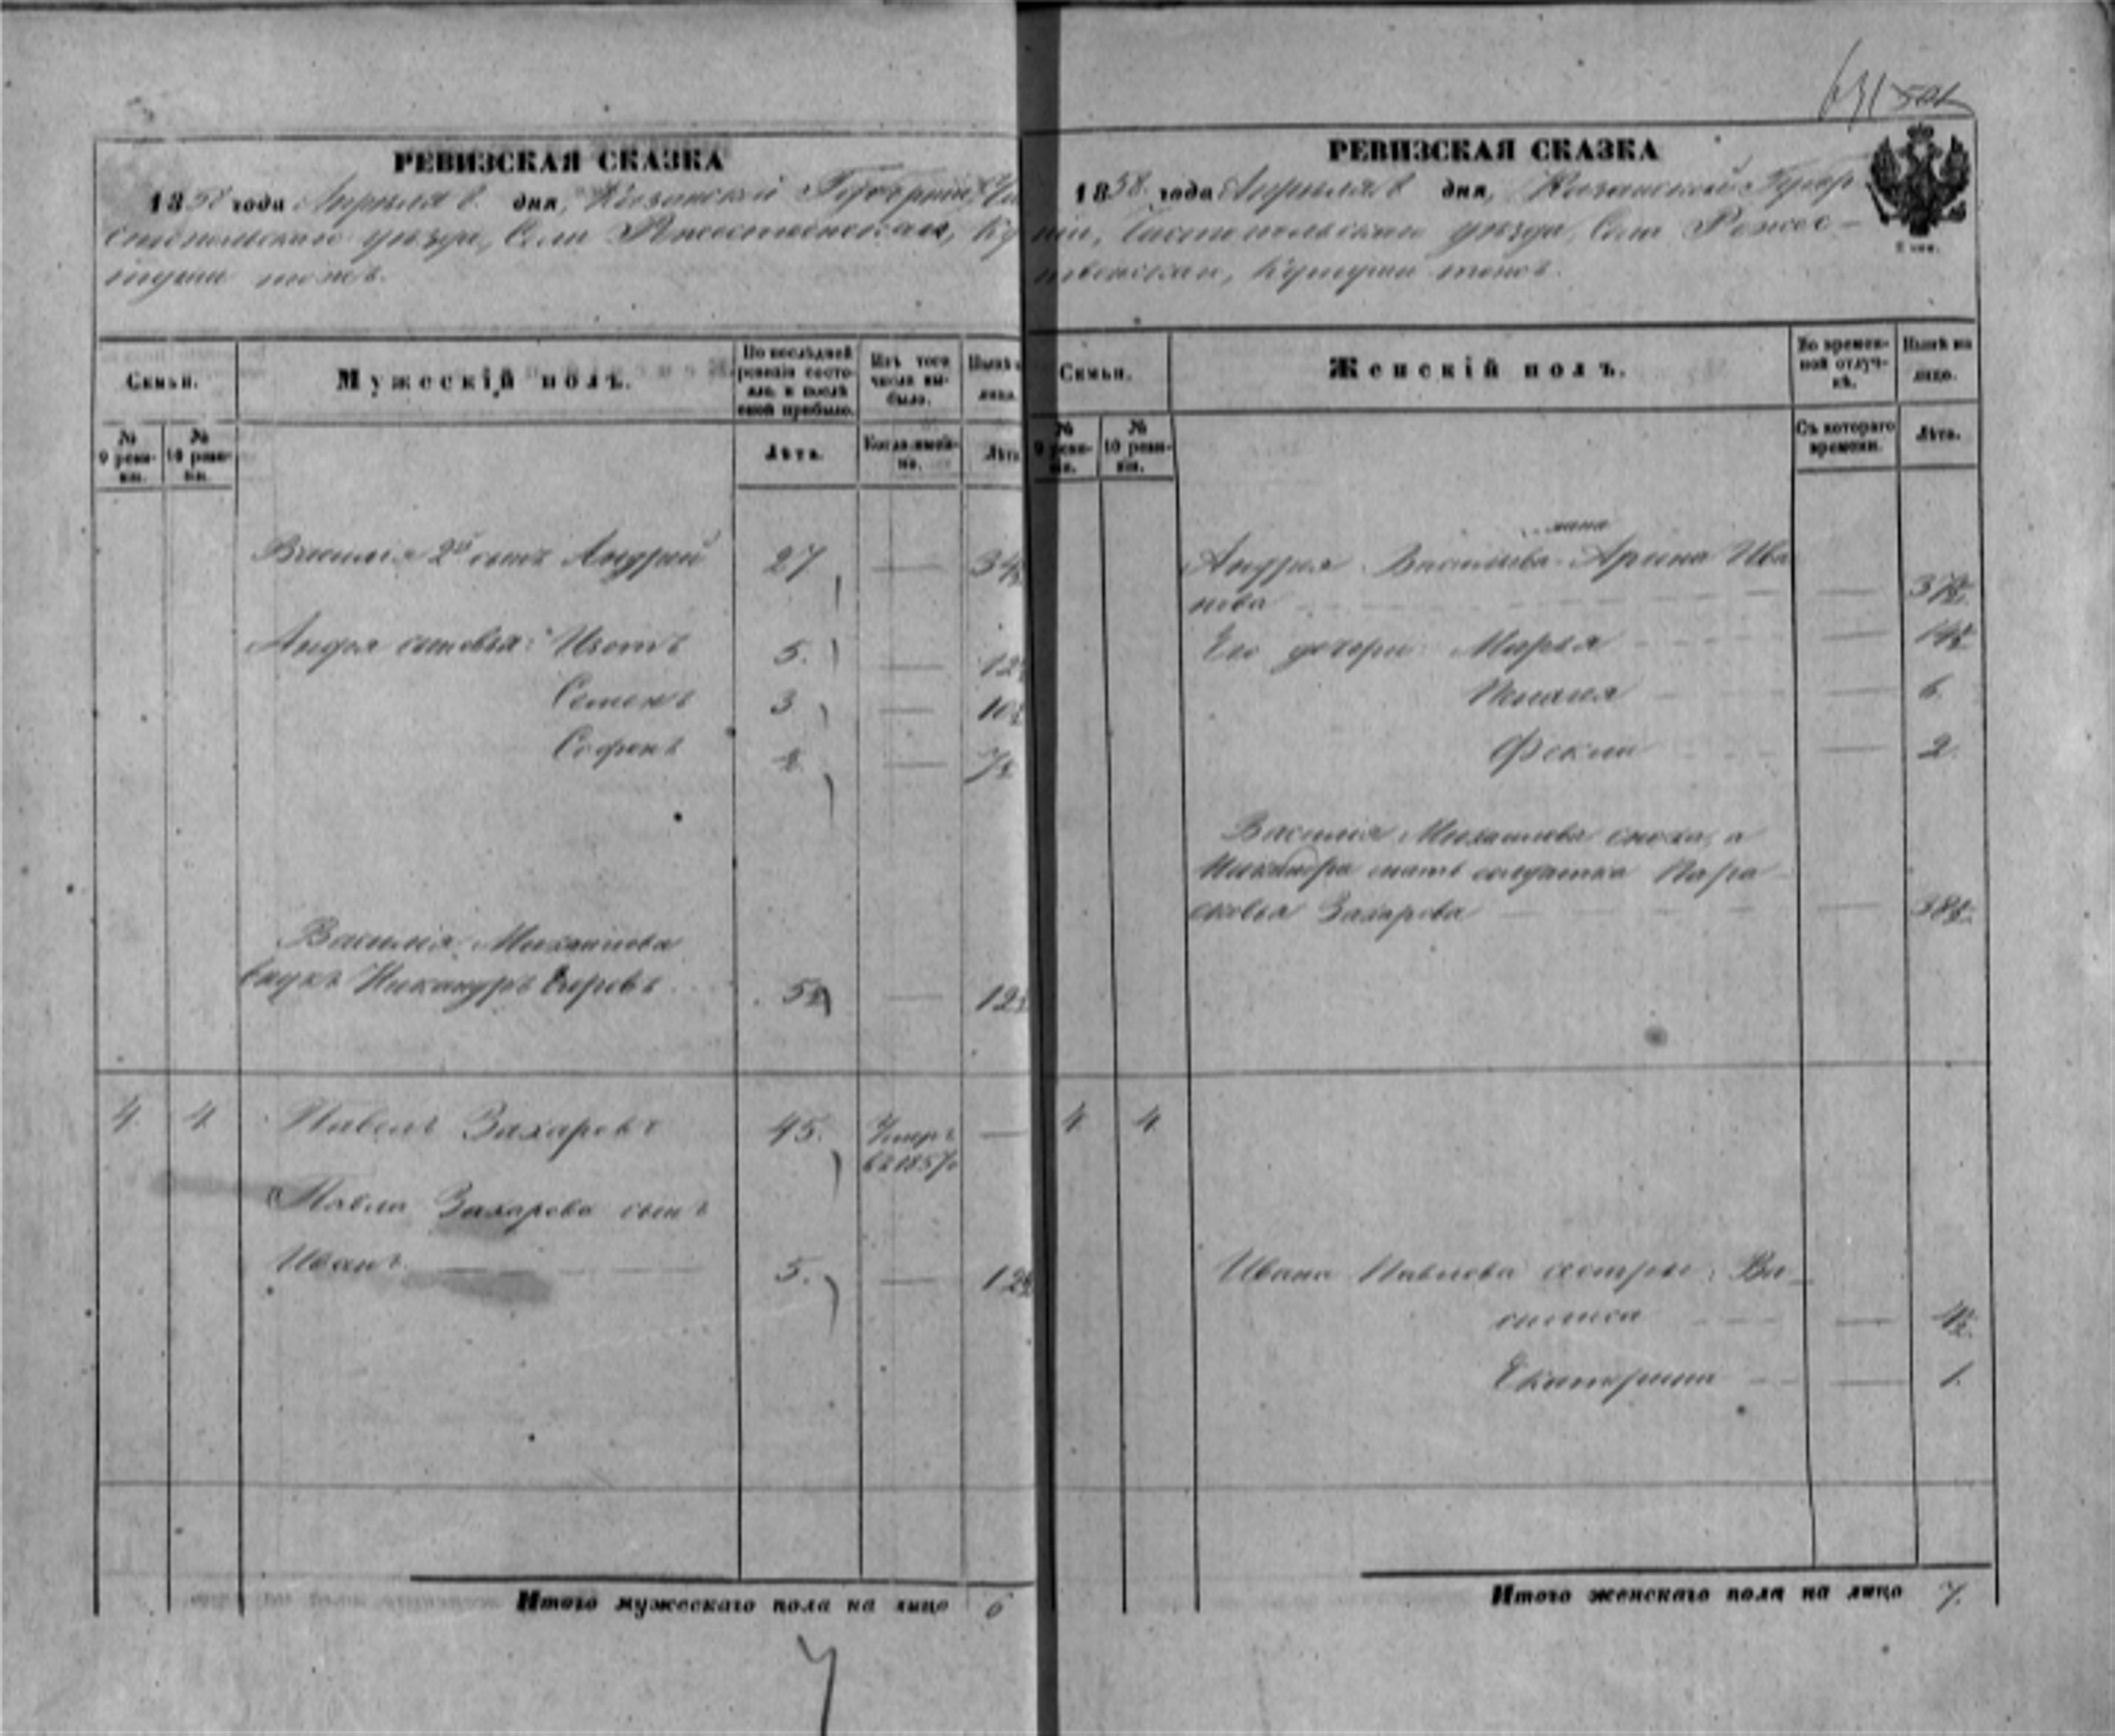 РЕВИЗСКАЯ СКАЗКА
1858 года Апреля 8 дня, Казанской Губернии, Чи
стопольскаго уезда, Села Рожественскаго, Ку
тушi тожъ.
Семьи.
Мужескій полъ.
По послѣдней ревизіи состояло, и послѣ оной прибыло.
Изъ того числа выбыло.
Нынѣ на лицо.
№ 9 ревизіи.
№ 10 ревизіи.
Лѣта.
Когда именно.
Лѣта
Василія 2й сынъ Андрей 27 — 34½
Андрея сыновья: Изотъ 5. — 12½
Семенъ 3 — 10½
Софонъ ½ — 7½
Василія Михайлова
внукъ Никаноръ Егоровъ 5½ — 12½
4. 4 Павелъ Захаровъ 45. Умеръ —
въ 1857
Павла Захарова сынъ
Иванъ 5. — 12½
Итого мужескаго пола на лицо 6
631 501
РЕВИЗСКАЯ СКАЗКА
1858 года Апреля 8 дня, Казанской Губер
ніи, Чистопольскаго уезда, Села Рожес-
твенскаго, тожъ.
Семьи.
Женскій полъ.
Во временной отлучкѣ.
Нынѣ на лицо.
№ 9 ревизіи.
№ 10 ревизіи.
Съ котораго времени.
Лѣта.
жена
Андрея Васильева Арина Ива
нова — 37½
Его дочери: Марья — 14½
Пелагея — 6.
Фекла — 2
Василія Михайлова сноха, а
Никанора мать солдатка Пара
сковья Захарова — 38½
4 4
Ивана Павлова сестры: Ва-
силиса — 4½
Екатерина — 1.
Итого женскаго пола на лицо 7.